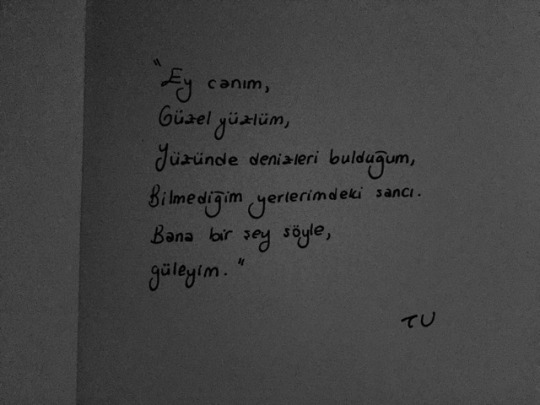 "Ey canım,
Güzel yüzlüm,
Yüzünde denizleri bulduğum,
Bilmediğim yerlerimdeki sancı.
Bana bir şey söyle,
güleyim."
TU